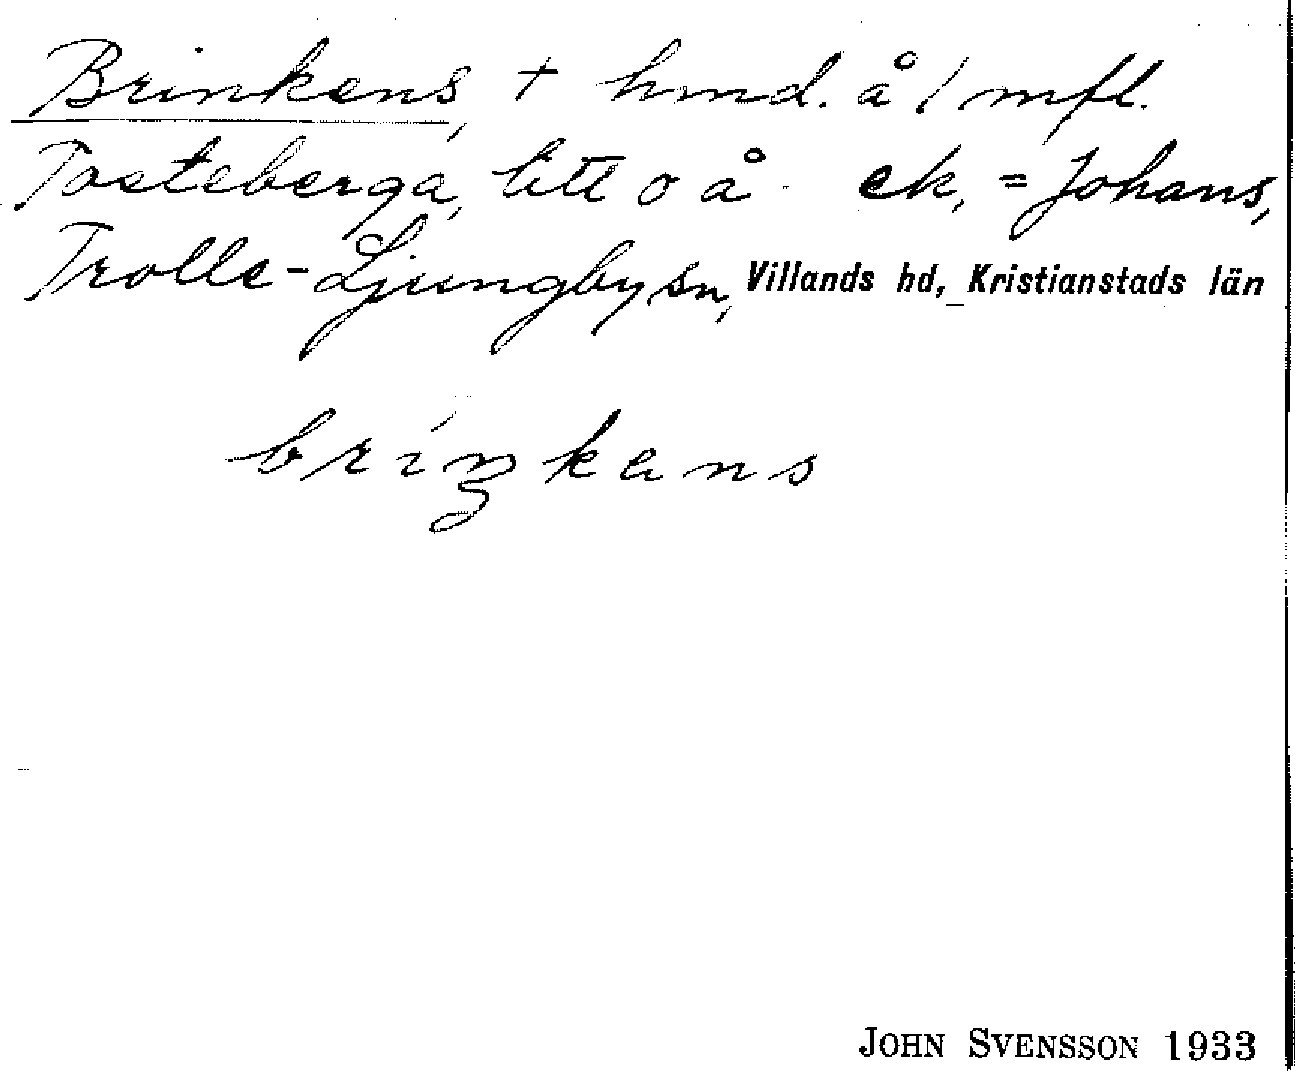 Brinkens, + hmd. å / mfl.
Tosteberga, litt o å ek, = Johans,
Trolle-Ljungby sn, Villands hd, Kristianstads län
briŋkens
JOHN SVENSSON 1933